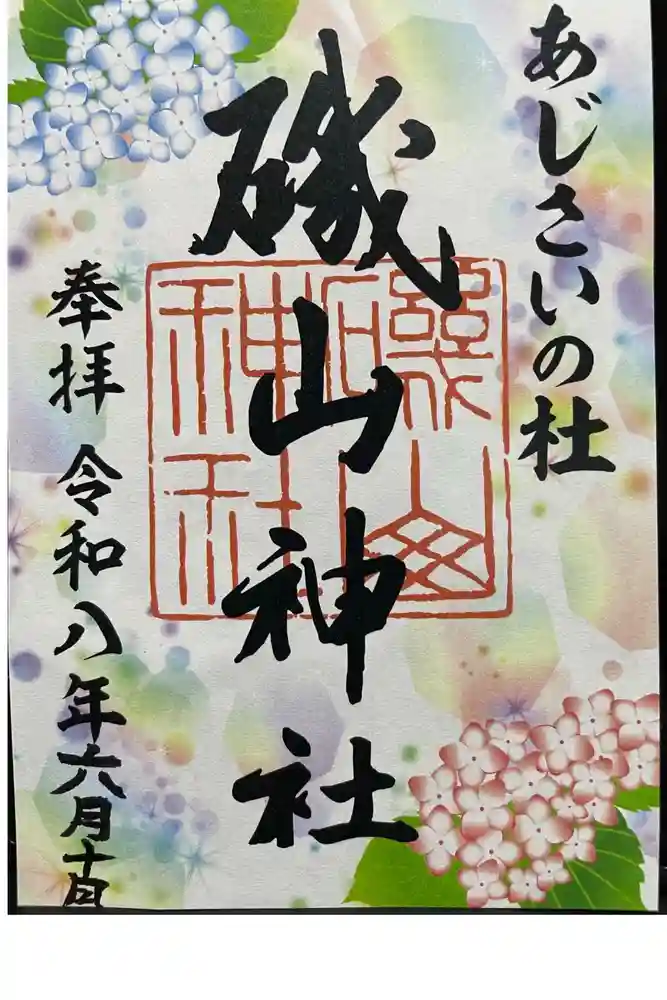 あじさいの杜
磯山神社
奉拝 令和八年六月十日
磯山
神社